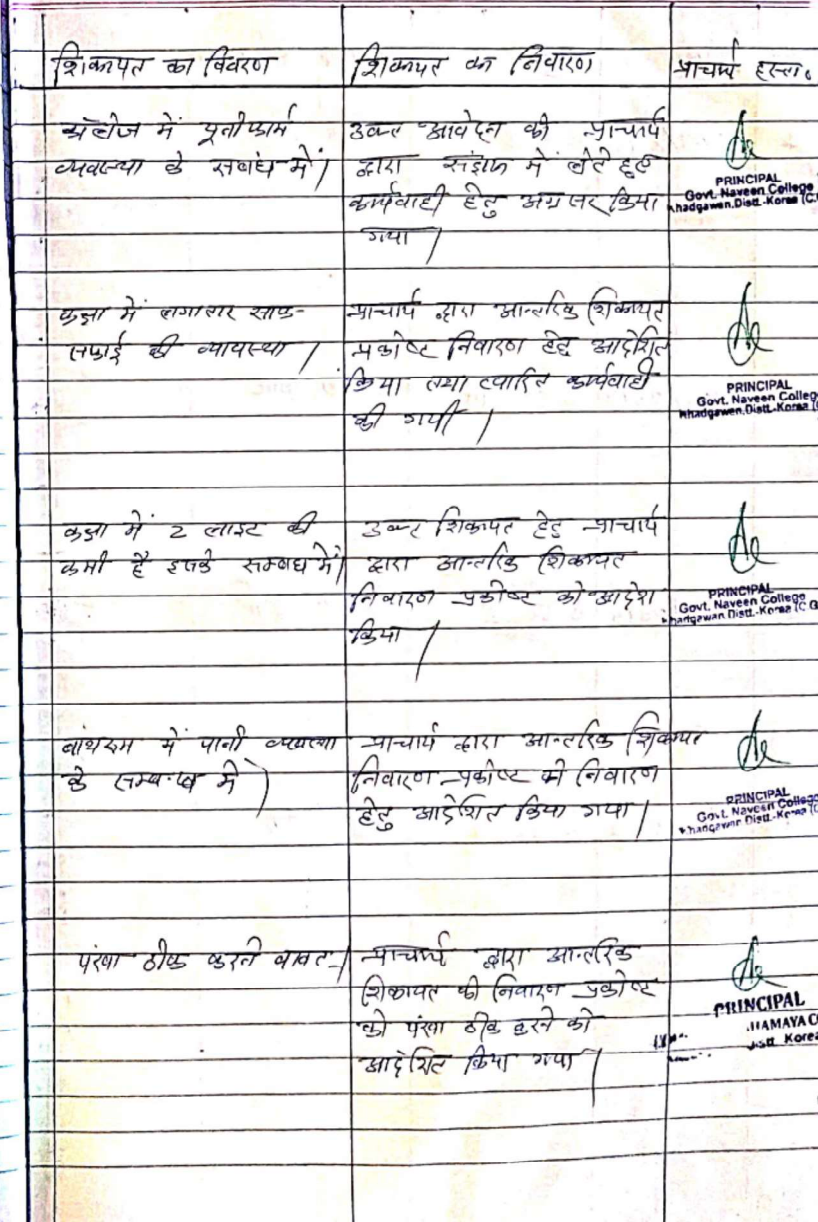 शिकायत का विवरण
शिकायत का निवारण
प्राचार्य हस्ता.
कॉलेज में यूनीफार्म
व्यवस्था के सबंध में|
उक्त आवेदन को प्राचार्य
द्वारा संज्ञान में लेते हुए
कार्यवाही हेतु अग्रसर किया
गया |
PRINCIPAL
Govt. Naveen College
Khadgawan, Distt.-Korea (C.G
कक्षा में लगातार साफ-
सफाई की व्यायस्था |
प्राचार्य द्वारा आन्तरिक शिकायत
प्रकोष्ट निवारण हेतु आदेशित
किया तथा त्वारित कार्यवाही
की गयी |
PRINCIPAL
Govt. Naveen College
Khadgawan, Distt.-Korea (C
कक्षा में 2 लाइट की
कमी है इसके सम्बध में|
उक्त शिकायत हेतु प्राचार्य
द्वारा आन्तरिक शिकायत
निवारण प्रकोष्ट को आदेश
किया |
PRINCIPAL
Govt. Naveen College
Khadgawan Distt.-Korea (C.G
बांथरुम में पानी व्यवस्था
के सम्बन्ध में |
प्राचार्य द्वारा आन्तरिक शिकायत
निवारण प्रकोष्ट को निवारण
हेतु आदेशित किया गया |
PRINCIPAL
Govt. Naveen College
Khadgawan Distt.-Korea (C
पंखा ठीक करने बाबत |
प्राचार्य द्वारा आन्तरिक
शिकायत की निवारन प्रकोष्ट
को पंखा ठीक करने को
आदेशित किया गया |
PRINCIPAL
HAMAYA CO
Distt. Korea